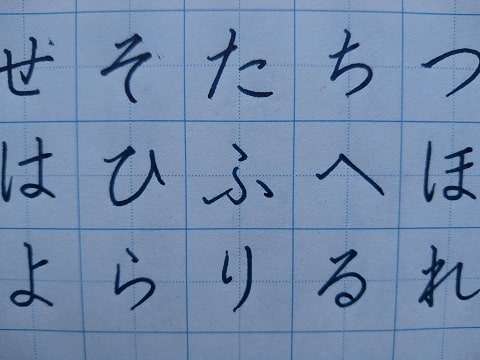 せそたちつ
はひふへほ
よらりるれ